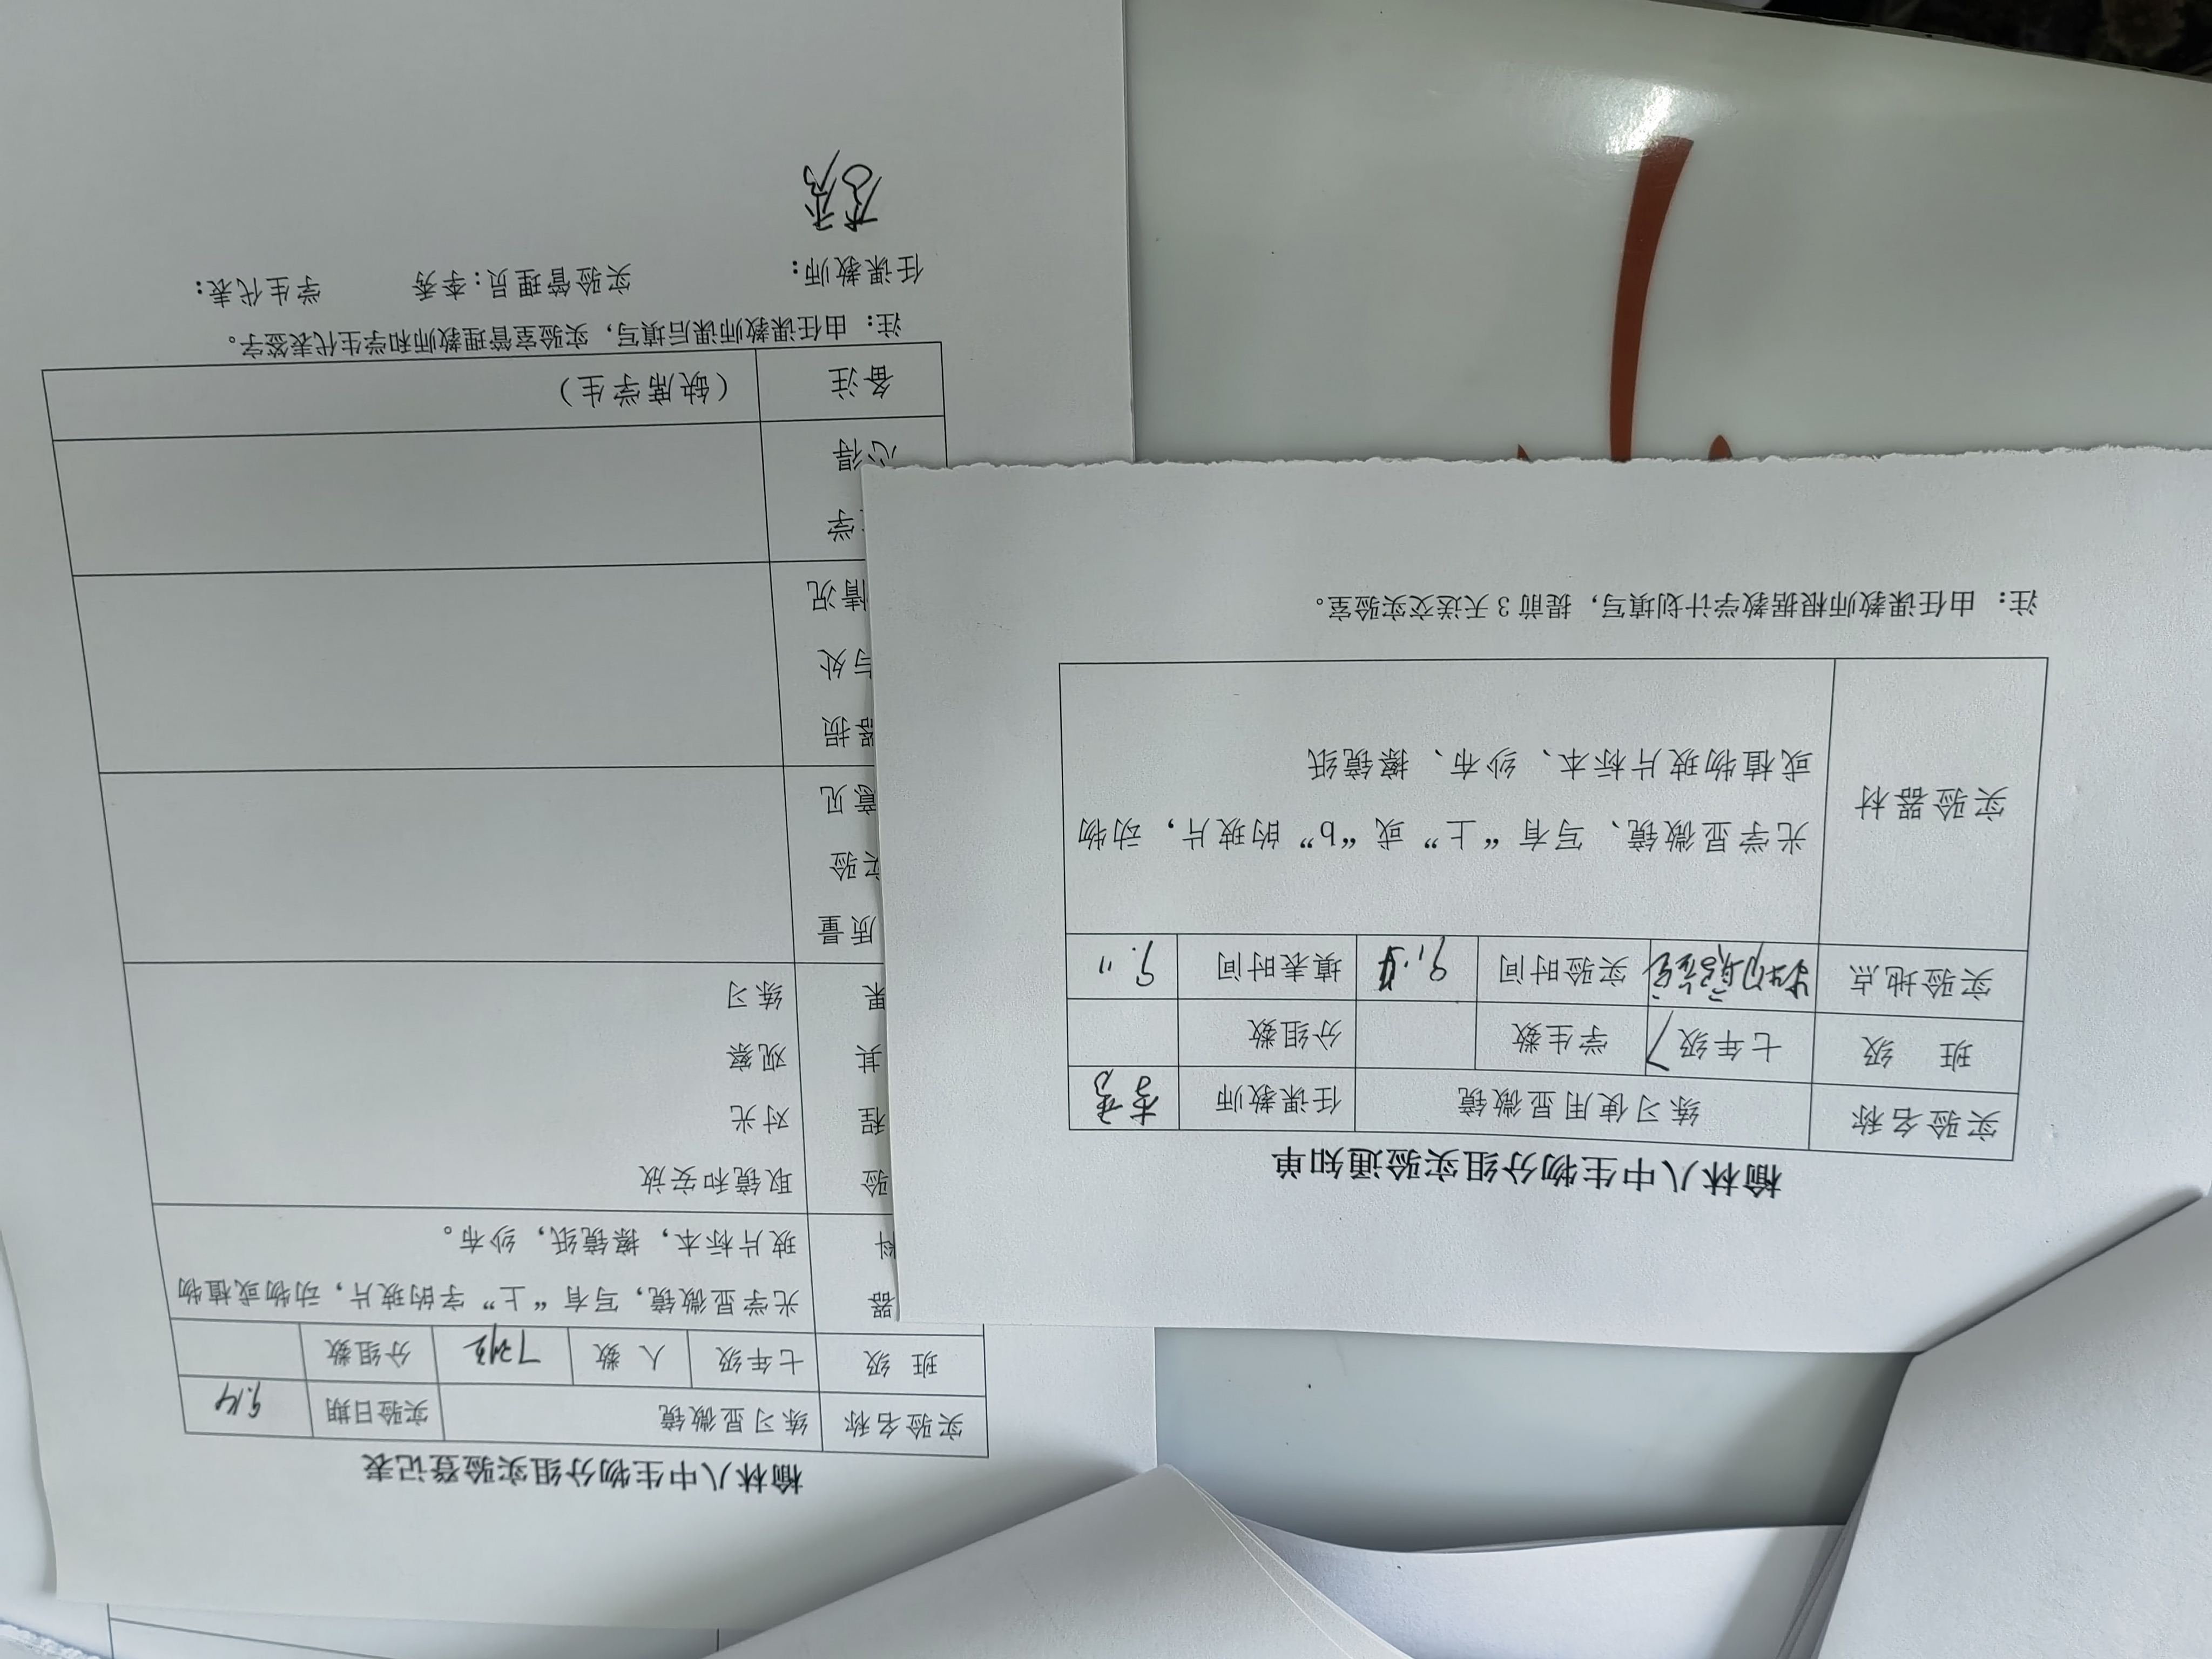 榆林八中生物分组实验通知单
实验名称 练习使用显微镜 任课教师 李秀
班 级 七年级7 学生数 分组数
实验地点 实验时间 填表时间 9.11
实验器材 光学显微镜、写有“上”或“b”的玻片，动物
或植物玻片标本、纱布、擦镜纸
注： 由任课教师根据教学计划填写，提前 3 天送交实验室。
榆林八中生物分组实验登记表
实验名称 练习显微镜 实验日期 9.14
班 级 七年级 人 数 7班 分组数
器 光学显微镜，写有“上”字的玻片，动物或植物
料 玻片标本，擦镜纸，纱布。
验 取镜和安放
程 对光
其 观察
果 练习
质量
实验
意见
器损
与处
情况
学
心得
备注 （缺席学生）
注： 由任课教师课后填写，实验室管理教师和学生代表签字。
任课教师： 实验管理员：李秀 学生代表：
李秀